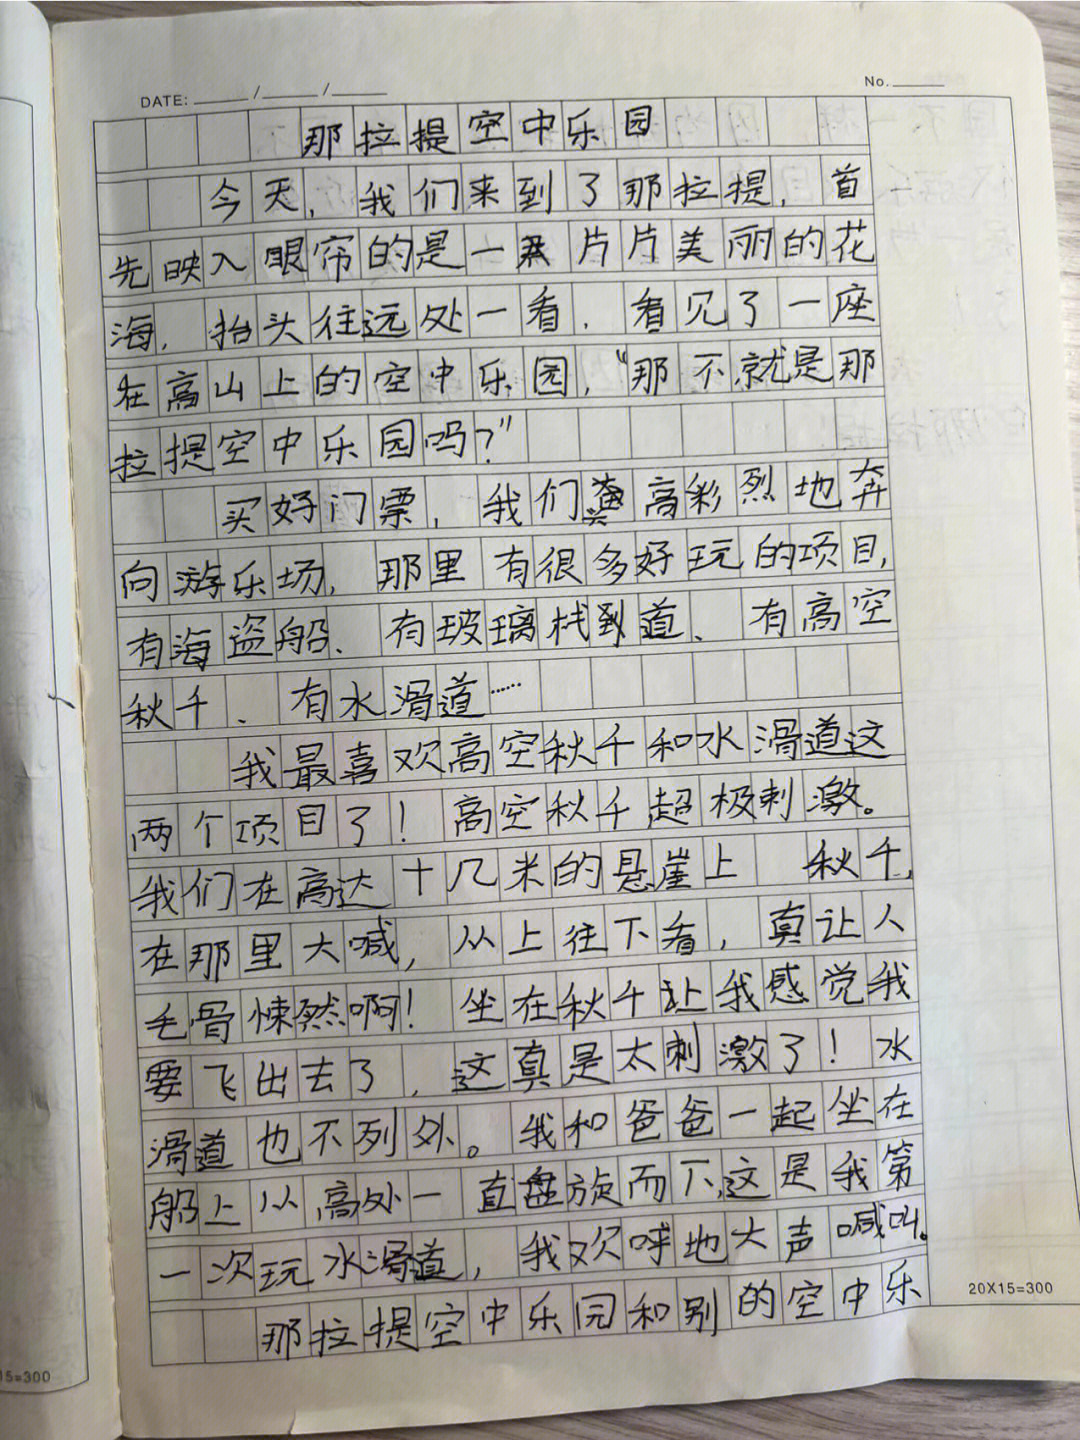 DATE: ____/____/____ No. ____
那拉提空中乐园
今天,我们来到了那拉提,首
先映入眼帘的是一片片美丽的花
海,抬头往远处一看,看见了一座
在高山上的空中乐园,“那不就是那
拉提空中乐园吗?”
买好门票,我们高彩烈地奔
向游乐场,那里有很多好玩的项目,
有海盗船、有玻璃栈道、有高空
秋千、有水滑道……
我最喜欢高空秋千和水滑道这
两个项目了!高空秋千超极刺激。
我们在高达十几米的悬崖上 秋千,
在那里大喊,从上往下看,真让人
毛骨悚然啊!坐在秋千让我感觉我
要飞出去了,这真是太刺激了!水
滑道也不列外。我和爸爸一起坐在
船上从高处一直盘旋而下,这是我第
一次玩水滑道,我欢呼地大声喊叫。
那拉提空中乐园和别的空中乐
20X15=300
15=300